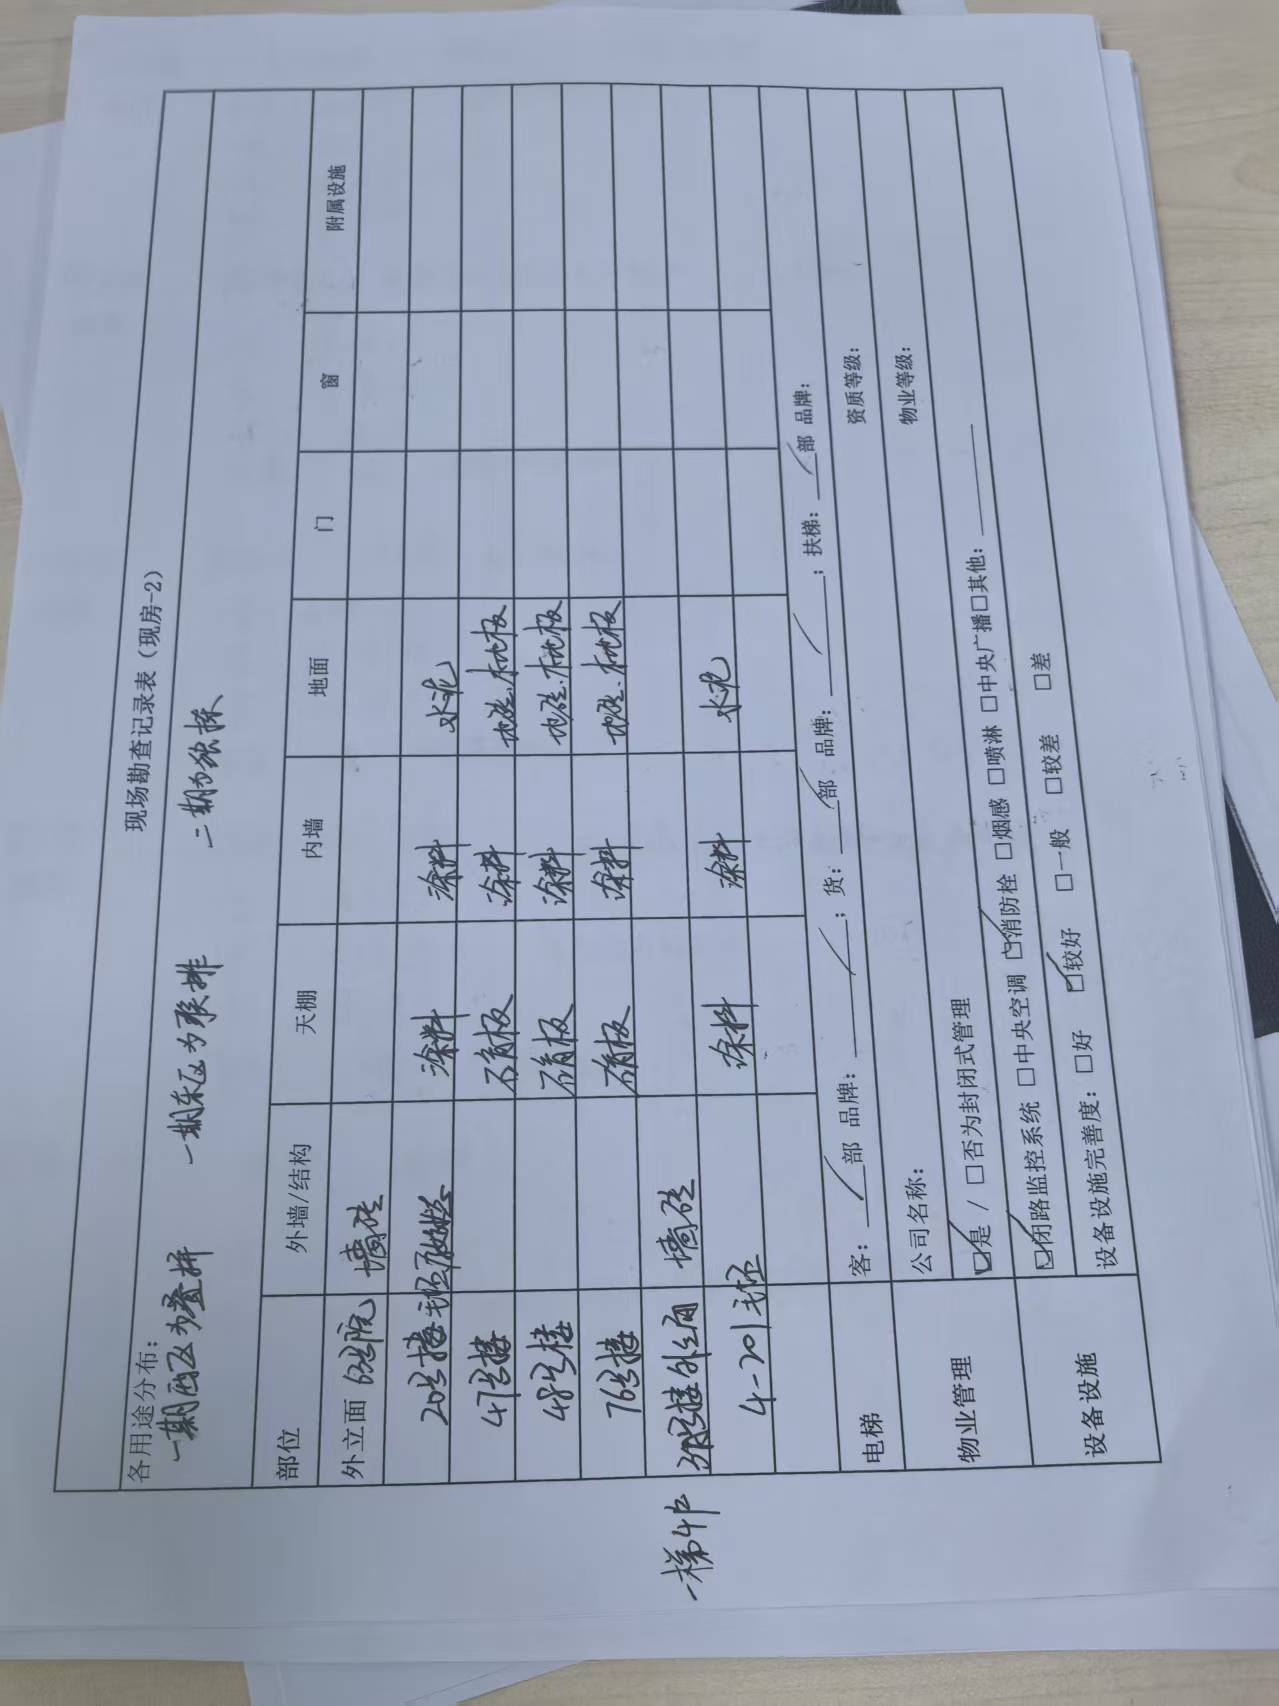 现场勘查记录表（现房-2）
各用途分布：
一期西区为叠拼 一期东区为联排 二期为独栋
部位 外墙/结构 天棚 内墙 地面 门 窗 附属设施
外立面 墙砖
20号楼毛坯 涂料 涂料 水泥
47号楼 石膏板 涂料 地砖.木地板
48号楼 石膏板 涂料 地砖.木地板
76号楼 石膏板 涂料 地砖.木地板
一梯4户 号楼外立面 墙砖
4-201毛坯 涂料 涂料 水泥
电梯 客：/部 品牌：/；货：/部 品牌：/；扶梯：/部 品牌：
物业管理 公司名称： 资质等级：
☑是 / □否为封闭式管理 物业等级：
设备设施 ☑闭路监控系统 □中央空调 ☑消防栓 □烟感 □喷淋 □中央广播□其他：
设备设施完善度： □好 ☑较好 □一般 □较差 □差